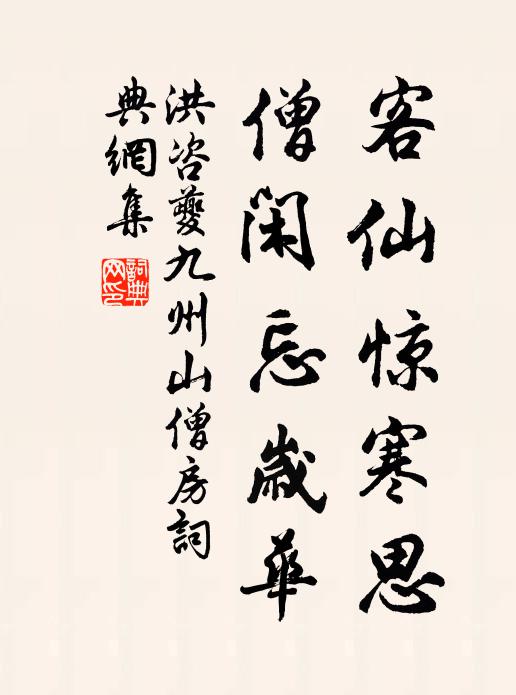 客仙惊寒思
僧闲忘岁华
洪咨夔九州山僧房詞
典網集
詞典网印